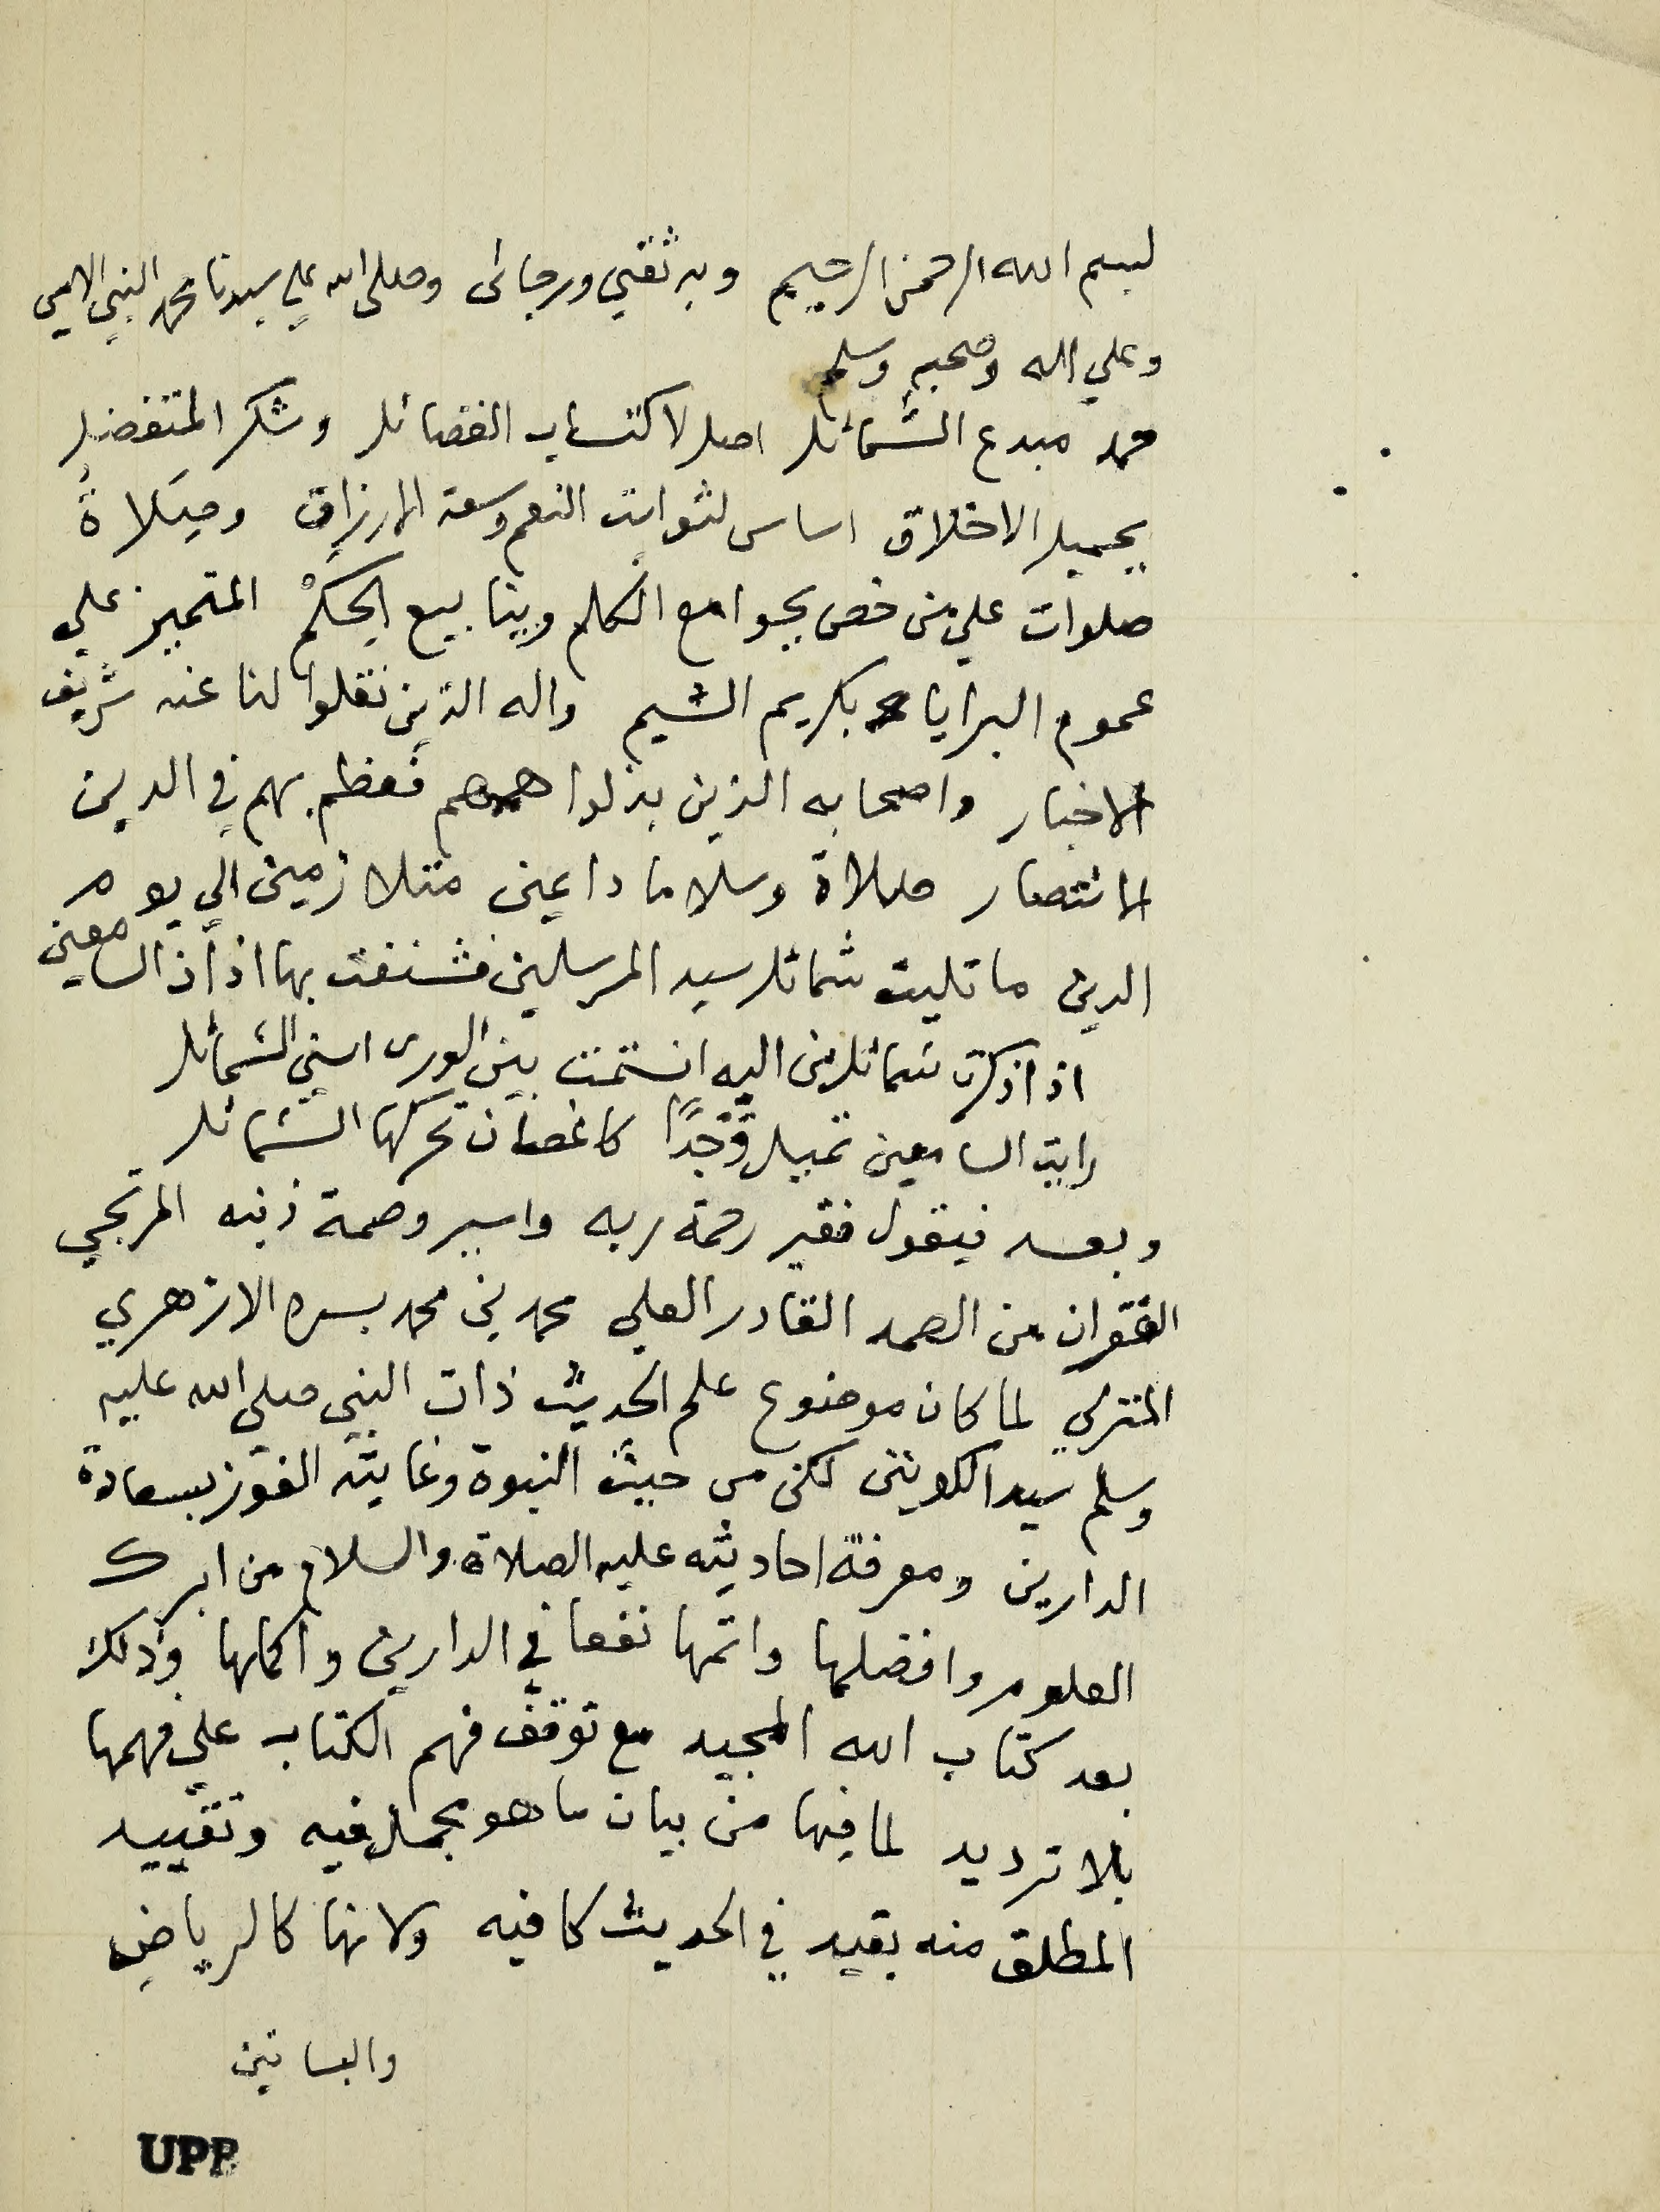 بسم الله الرحمن الرحيم وبه ثقتي ورجائى وصلى الله علي سيدنا محمد النبي الامي
وعلي اله وصحبه وسلم
حمد مبدع الشمائل اصل لاكتساب الفضائل وشكر المتفضل
بجميل الاخلاق اساس لثوابت النعم وسعة الارزاق وصلاةُ
صلوات علي من خص بجوامع الكلم وينابيع الحكمْ المتميز علي
عموم البرايا بكريم الشيم واله الذين نقلوا لنا عنه شريف
الاخبار واصحابه الذين بذلوا هممهم فعظم بهم في الدين
الانتصار صلاة وسلاما دايمين متلازمين الي يوم
الدين ما تليت شمائل سيد المرسلين فشنفت بها اذاذ السامعين
اذا ذكرت شمائل من اليه انتمت بين الورى اسني الشمائل
رايت السامعين تميل وَجْدًا كاغصان تحركها الشمائل
وبعد فيقول فقير رحمة ربه واسير وصمة ذنبه المرتجي
الغفران من الصمد القادر العلي محمد بن محمد بسره الازهري
المنزلي لما كان موضوع علم الحديث ذات النبي صلى الله عليه
وسلم سيد الكونين لكن من حيث النبوة وغايته الفوز بسعادة
الدارين ومعرفة احاديثه عليه الصلاة والسلام من ابرك
العلوم وافضلها واتمها نفعا في الدارين واكملها وذلك
بعد كتاب الله المجيد مع توقف فهم الكتاب علي فهمها
بلا ترديد لما فيها من بيان ما هو مجمل فيه وتقييد
المطلق منه بقيد في الحديث كافيه ولانها كالرياض
والبساتين
UPB